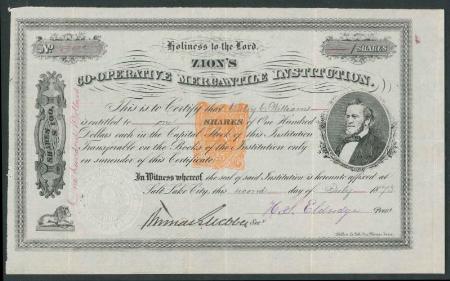 Holiness to the Lord.
No.
SHARES
ZION'S
CO-OPERATIVE MERCANTILE INSTITUTION.
This is to Certify that Williams
is entitled to one SHARES of One Hundred
Dollars each in the Capital Stock of this Institution
Transferable on the Books of the Institution only
on surrender of this Certificate.
In Witness whereof the seal of said Institution is hereunto affixed at
Salt Lake City, this second day of July 1873
Thomas Secy.
H. S. Eldredge Prest.
SHARES $100.
One hundred Dollars